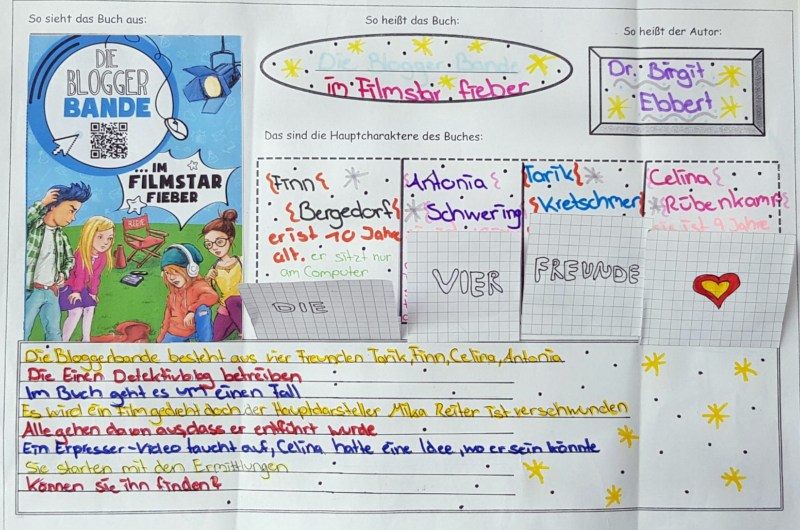 So sieht das Buch aus:
So heißt das Buch:
So heißt der Autor:
DIE
BLOGGER
BANDE
... IM
FILMSTAR
FIEBER
REGIE
Die Blogger Bande
im Filmstar fieber
Dr. Birgit
Ebbert
Das sind die Hauptcharaktere des Buches:
Finn
Bergedorf
er ist 10 Jahre
alt. er sitzt nur
am Computer
DIE
Antonia
Schwering
VIER
Tarik
Kretschmer
FREUNDE
Celina
Rübenkamp
sie ist 9 Jahre
Die Bloggerbande besteht aus vier Freunden Tarik, Finn, Celina, Antonia
Die Einen Detektivblog betreiben
Im Buch geht es um einen Fall
Es wird ein Film gedreht doch der Hauptdarsteller Mika Reiter ist verschwunden
Alle gehen davon aus, dass er entführt wurde
Ein Erpresser-Video taucht auf, Celina hatte eine Idee, wo er sein könnte
Sie starten mit den Ermittlungen
Können sie ihn finden?